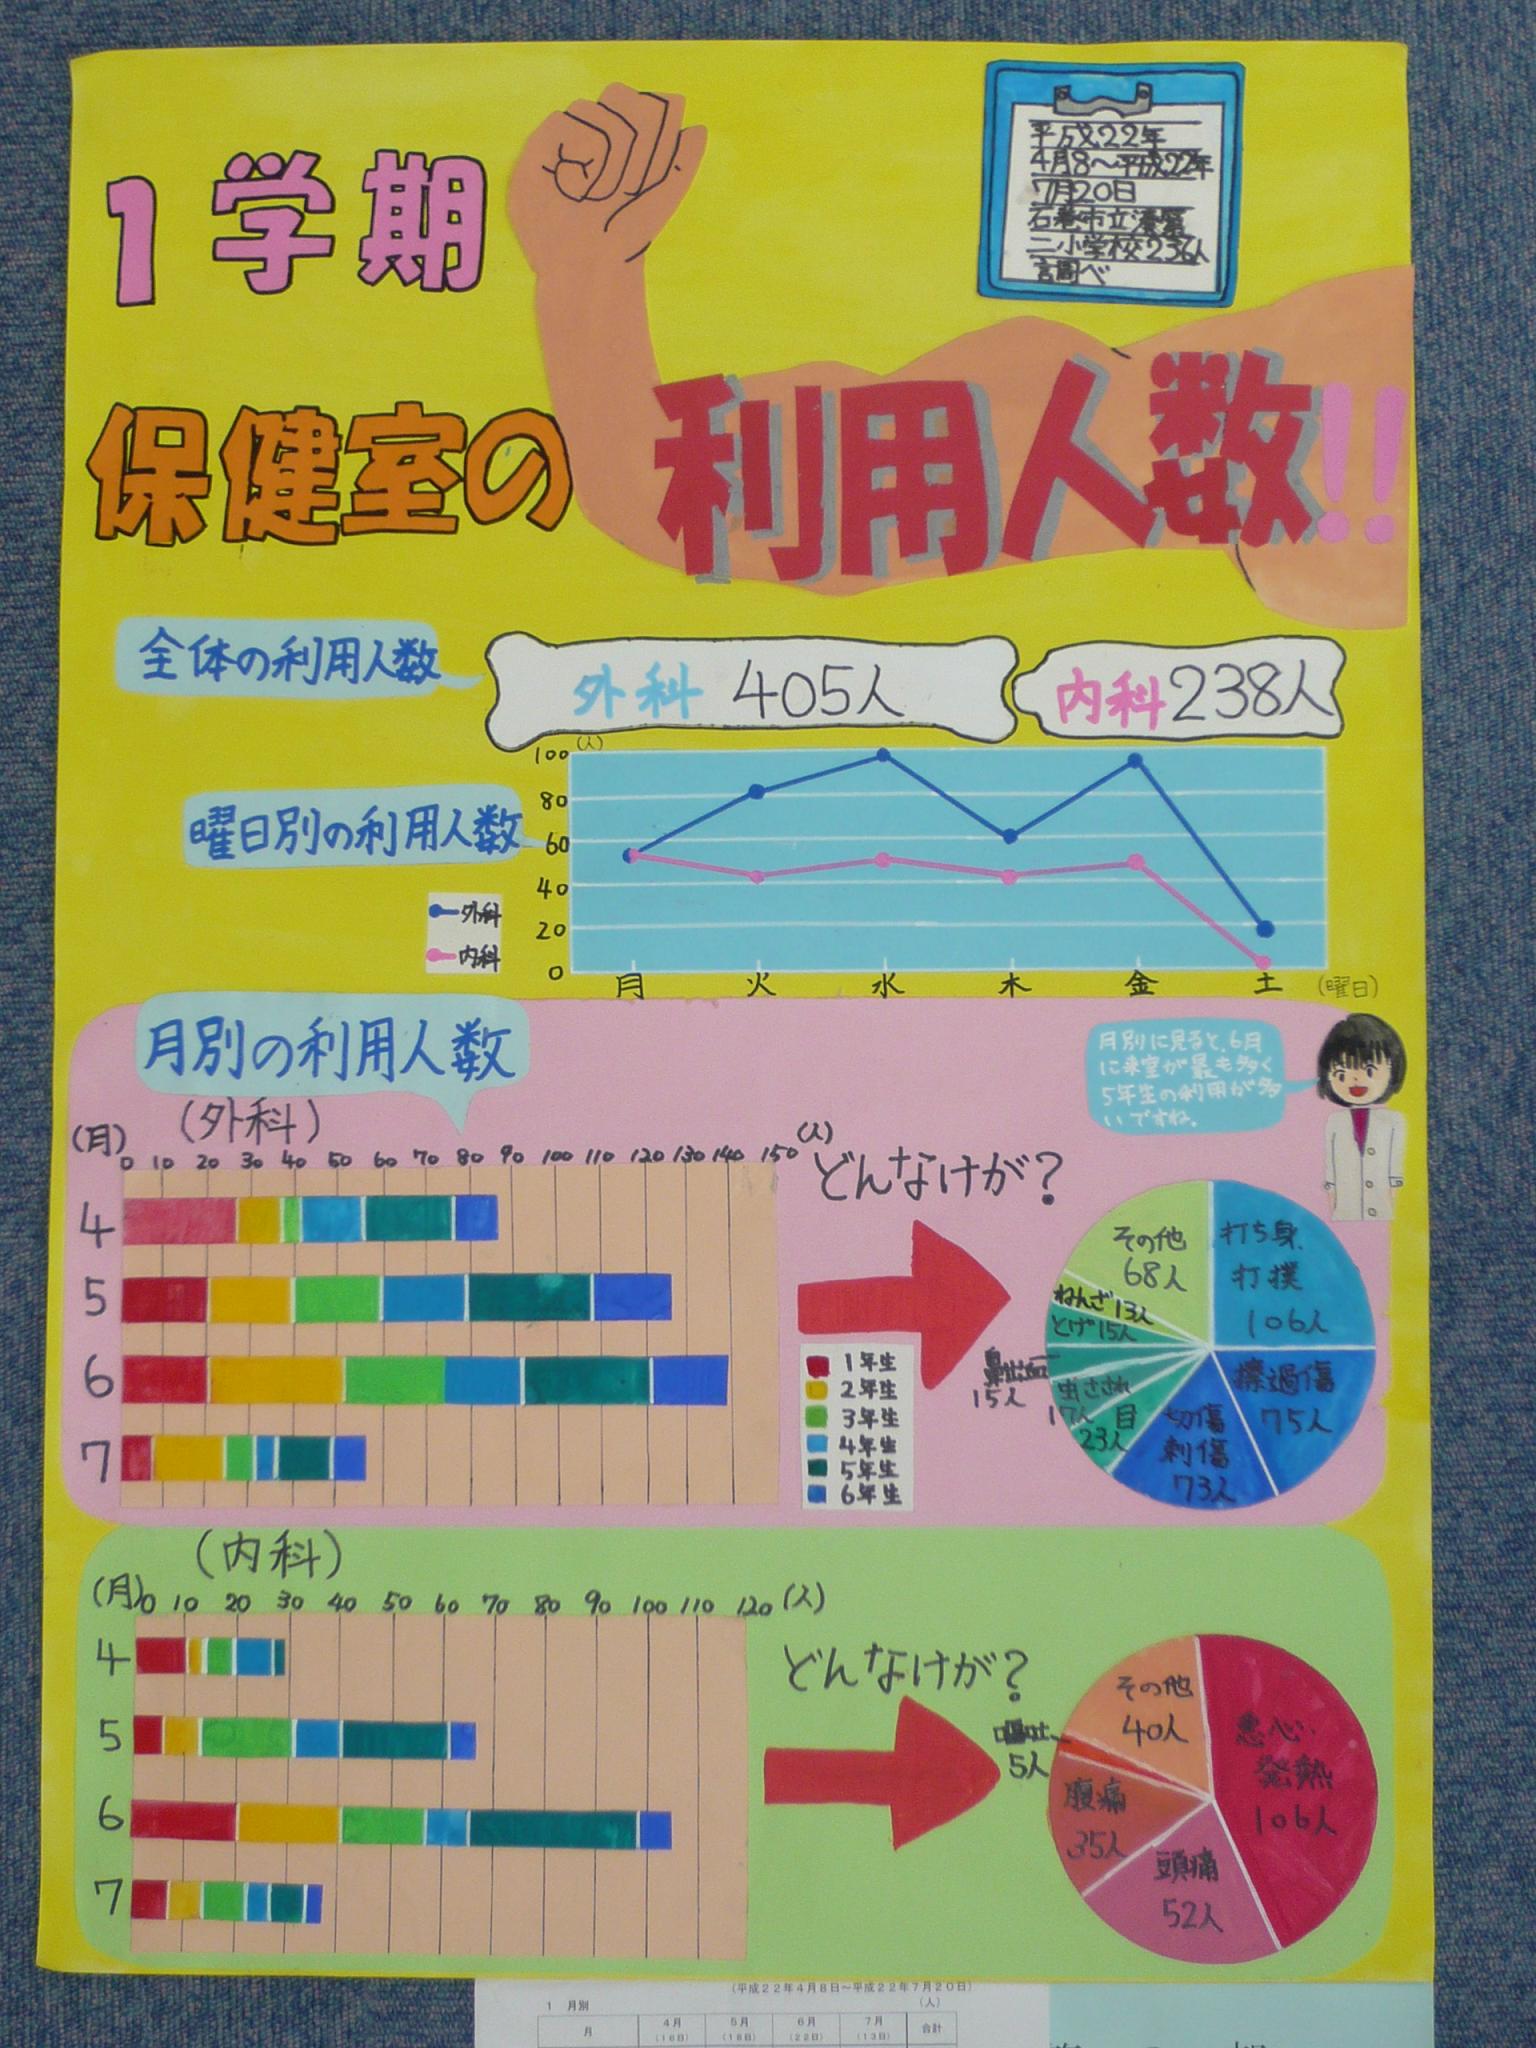 1学期
保健室の
利用人数!!
平成22年
4月8～平成22年
7月20日
石巻市立
二小学校236人
調べ
全体の利用人数
外科 405人
内科238人
曜日別の利用人数
外科
内科
(人)
100
80
60
40
20
0
月 火 水 木 金 土 (曜日)
月別の利用人数
月別に見ると、6月
に来室が最も多く
5年生の利用が多
いですね。
(外科)
(月)
0 10 20 30 40 50 60 70 80 90 100 110 120 130 140 150 (人)
4
5
6
7
どんなけが?
1年生
2年生
3年生
4年生
5年生
6年生
打ち身、
打撲
106人
擦過傷
75人
切傷
刺傷
73人
目
23人
虫さされ
17人
鼻出血
15人
とげ15人
ねんざ13人
その他
68人
(内科)
(月)
0 10 20 30 40 50 60 70 80 90 100 110 120 (人)
4
5
6
7
どんなけが?
悪心・
発熱
106人
頭痛
52人
腹痛
35人
嘔吐
5人
その他
40人
(平成22年4月8日～平成22年7月20日)
1 月別
(人)
月 4月 5月 6月 7月 合計
(16日) (18日) (22日) (13日)